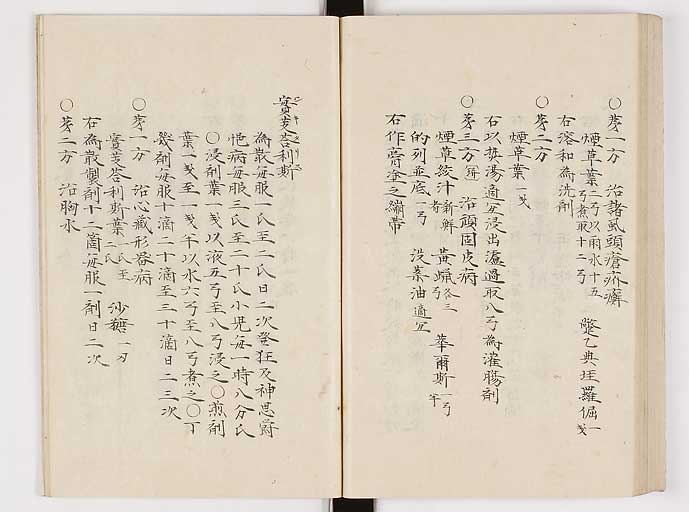 ○第一方 治諸虱頭瘡疥癬
煙草葉二弓以雨水十五弓煮取十二弓 鼈乙典垤羅倔一戔
右溶和為洗劑
○第二方
煙草葉一戔
右以换湯適宜浸出濾過取八弓為灌腸劑
○第三方 治頑固皮病
煙草絞汁新鮮者 黄蝋各三弓 華爾斯一弓半
的列並底一弓 没菜油適宜
右作膏塗之繃帯
實芰荅利斯
為散毎服一氏至二氏日二次發狂及神思欝
悒病毎服三氏至二十氏小児毎一時八分氏
○浸劑葉一戔以液五弓至八弓浸之○煎劑
葉一戔至一戔半以水六弓至八弓煮之○丁
幾劑毎服十滴二十滴至三十滴日二三次
○第一方 治心藏形器病
實芰荅利斯葉一氏至二氏 沙糖一刃
右為散製劑十二箇毎服一劑日二次
○第二方 治胸水